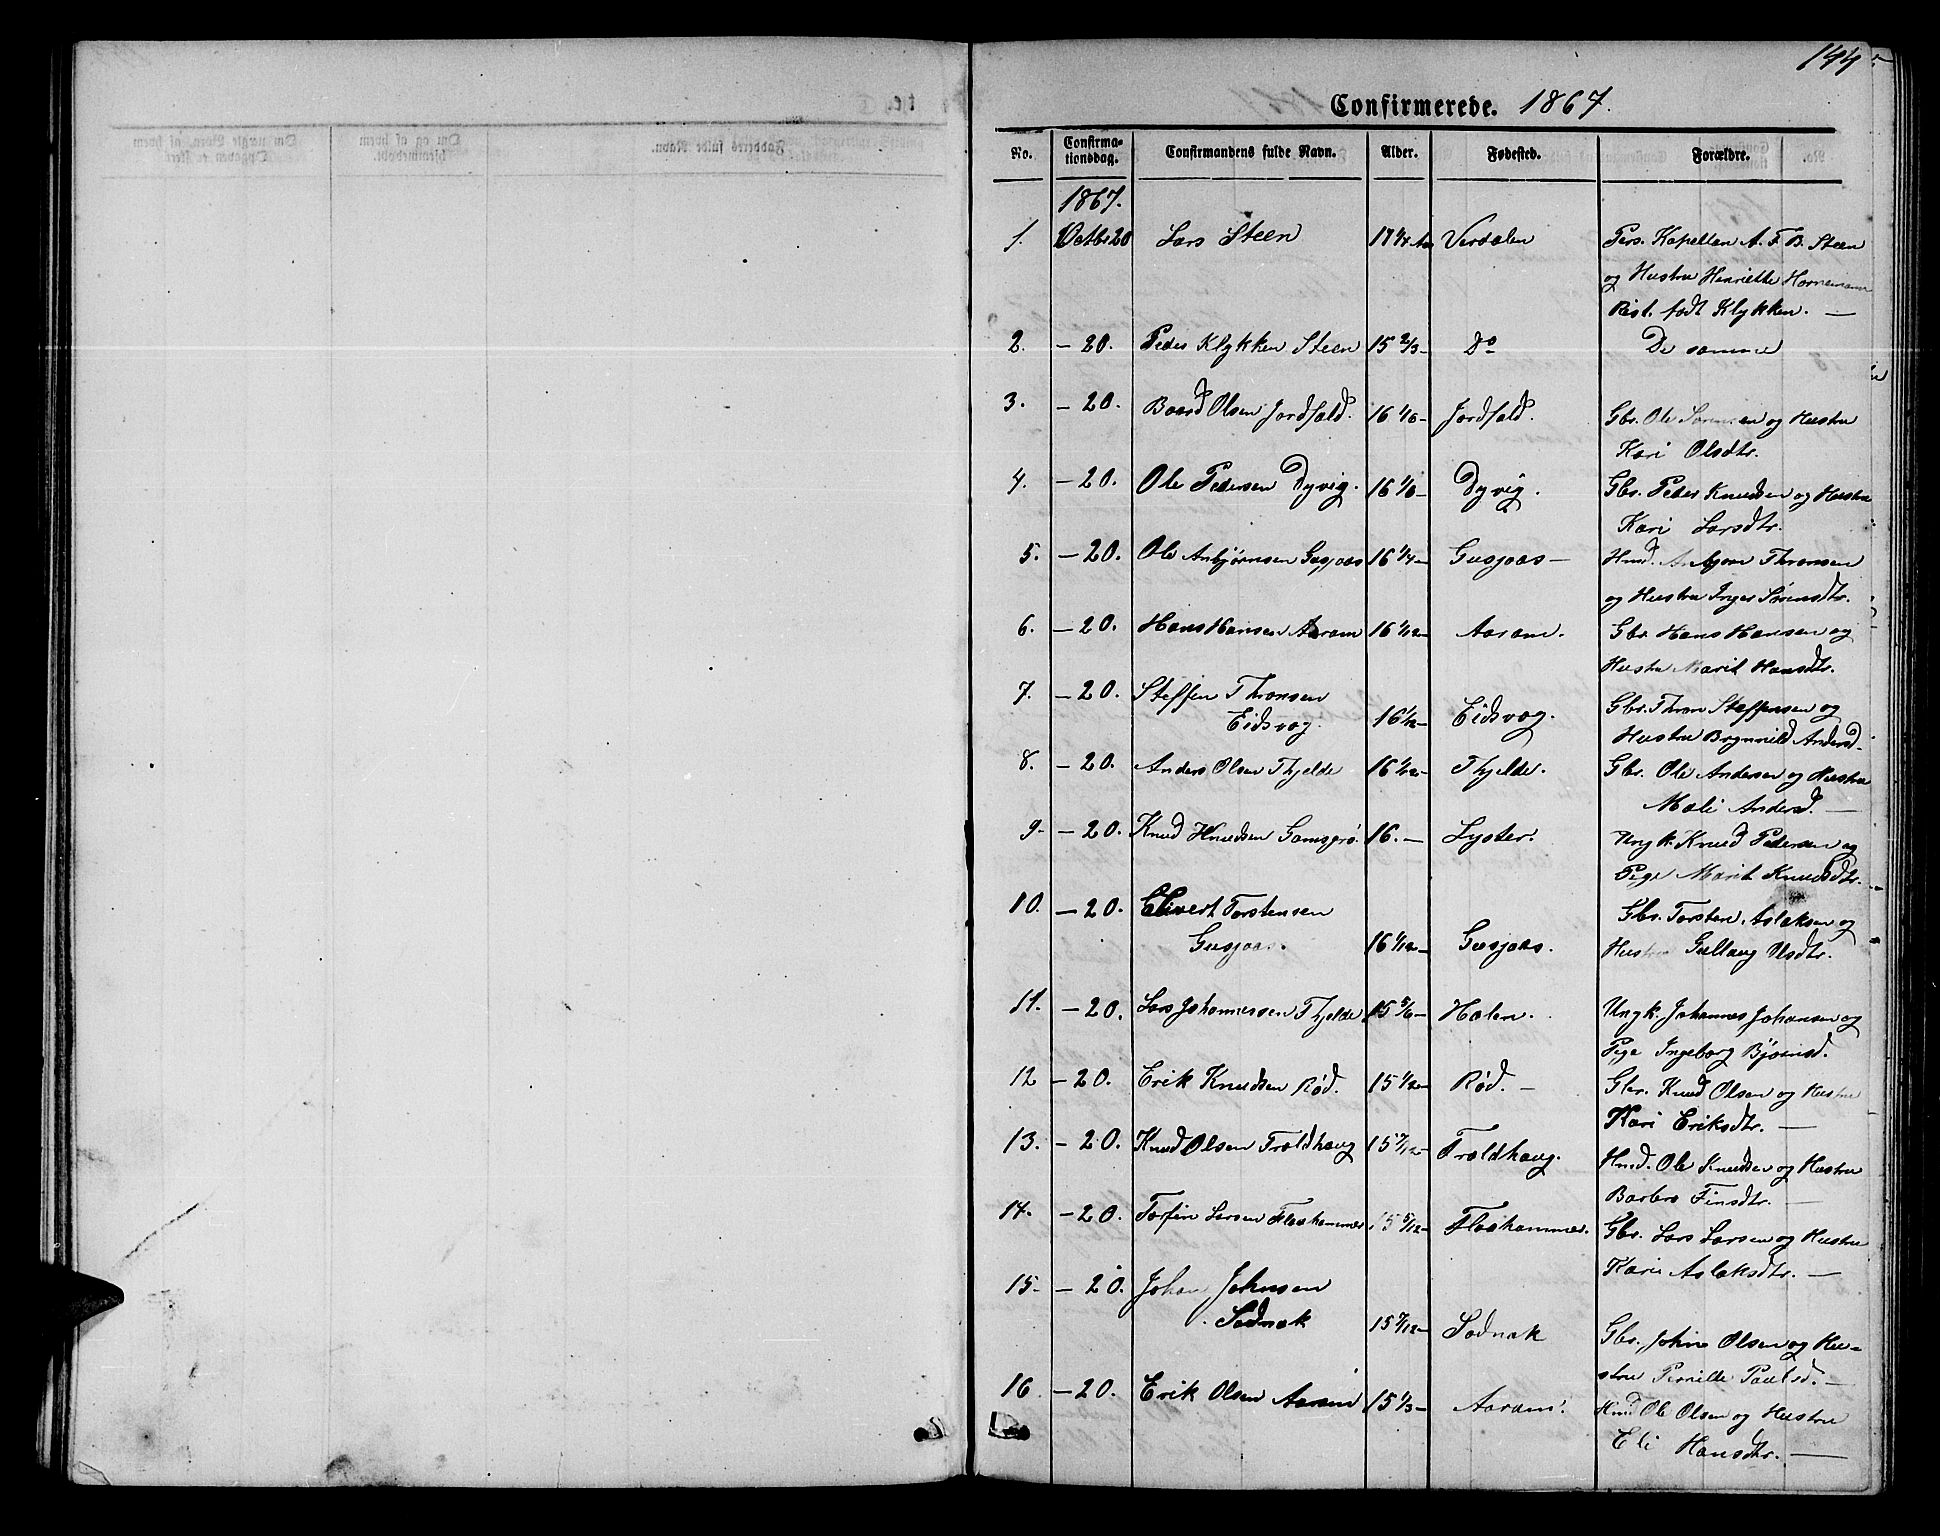 144
Confirmerede. 1867.
No. Confirma-tionsdag. Confirmandens fulde Navn. Alder. Fødested. Forældre.
1867.
1. Octbr 20 Lars Steen 17 1/4 Aar Verdalen Pers. Kapellan A. F. B. Steen
og Hustru Henriette Hornemann
Rist. født Klykken. —
2. — 20. Peder Klykken Steen 15 2/3 — Do De samme
3. — 20. Baard Olsen Jordfald. 16 1/6 — Jordfald. Gbr. Ole Sørensen og Hustru
Kari Olsdtr.
4. — 20. Ole Pedersen Dyvig. 16 1/6 — Dyvig. Gbr. Peder Knudsen og Hustru
Kari Larsdtr.
5. — 20. Ole Anbjørnsen Gusjaas 16 1/4 — Gusjaas — Hmd. Anbjørn Thronsen
og Hustru Inger Sørensdtr.
6. — 20. Hans Hansen Aaram 16 1/12 — Aaram. Gbr. Hans Hansen og
Hustru Marit Hansdtr.
7. — 20. Steffen Thronsen
Eidsvag. 16 1/12 — Eidsvag. Gbr. Thron Steffensen og
Hustru Brynnild Andersd —
8. — 20. Anders Olsen Thjelde 16 1/12 — Thjelde. Gbr. Ole Andersen og Hustru
Mali Andersd. —
9 — — 20. Knud Knudsen Gamsgrø. 16. — Lyster. Ungk. Knud Pedersen og
Pige Marit Knudsdtr. —
10. — 20. Sivert Torstensen
Gusjaas. 16 1/12 — Gusjaas. Gbr. Torsten Aslaksen og
Hustru Gullaug Olsdtr.
11. — 20. Lars Johannessen Thjelde 15 5/6 — Halen. Ungk. Johannes Johansen og
Pige Ingeborg Bjørnsd.
12 — 20. Erik Knudsen Rød. 15 1/2 — Rød. — Gbr. Knud Olsen og Hustru
Kari Eriksdtr. —
13. — 20. Knud Olsen Troldhaug 15 7/12 — Troldhaug. Hmd. Ole Knudsen og Hustru
Barbro Finsdtr. —
14. — 20. Torfin Larsen Flaahammer 15 5/12 — Flaahammer. Gbr. Lars Larsen og Hustru
Kari Aslaksdtr. —
15. — 20. Johan Johnsen
Sødnak 15 7/12 — Sødnak Gbr. John Olsen og Hu-
stru Pernille Paulsd. —
16. — 20. Erik Olsen Aaram 15 1/3 — Aaram. Hmd Ole Olsen og Hustru
Eli Hansdtr. —